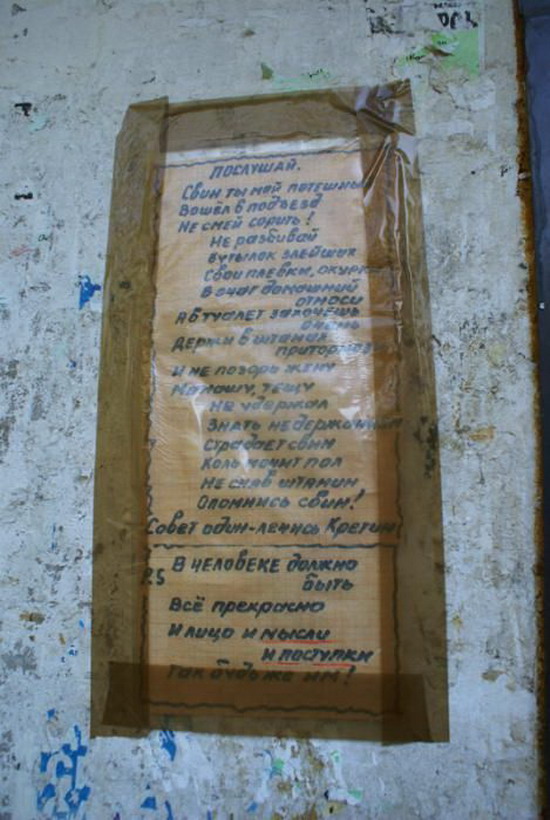 ПОСЛУШАЙ.
Свин ты мой потешный
Вошёл в подъезд
Не смей сорить!
Не разбивай
Бутылок злейших
Свои плевки, окурки
В очаг домашний
относи
А в туалет захочешь
очень
Держи в штанах
притормози
И не позорь жену
Мамашу, тёщу
Не удержал
Знать недержанием
Страдает свин
Коль мочит пол
Не сняв штанин
Опомнись свин!
Совет один-лечись Кретин
P.S В ЧЕЛОВЕКЕ должно
быть
Всё прекрасно
И лицо и мысли
и поступки
Так будь же им!